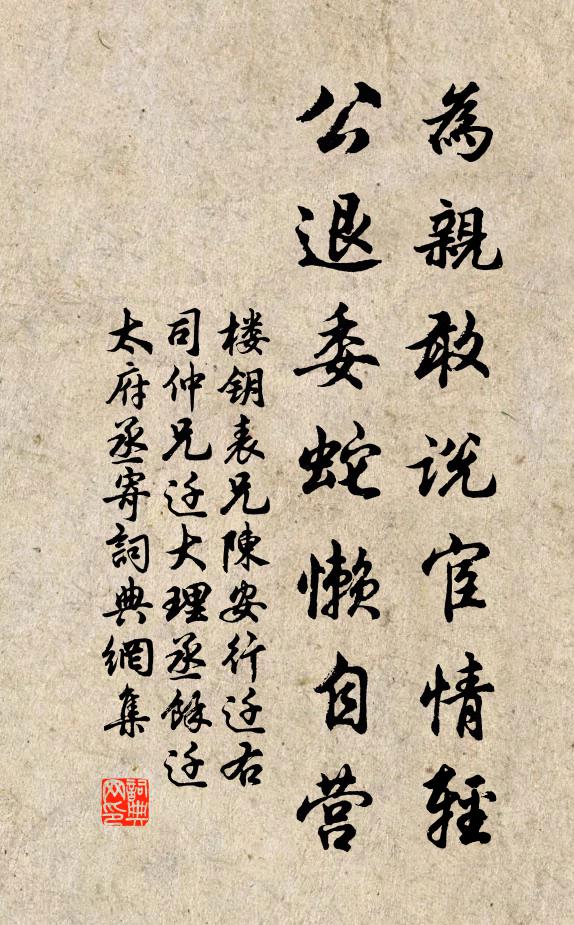 為親敢説宦情輕
公退委蛇懶自营
楼钥表兄陳安行迁右
司仲兄迁大理丞餘迁
太府丞寄詞典網集
詞典
网印